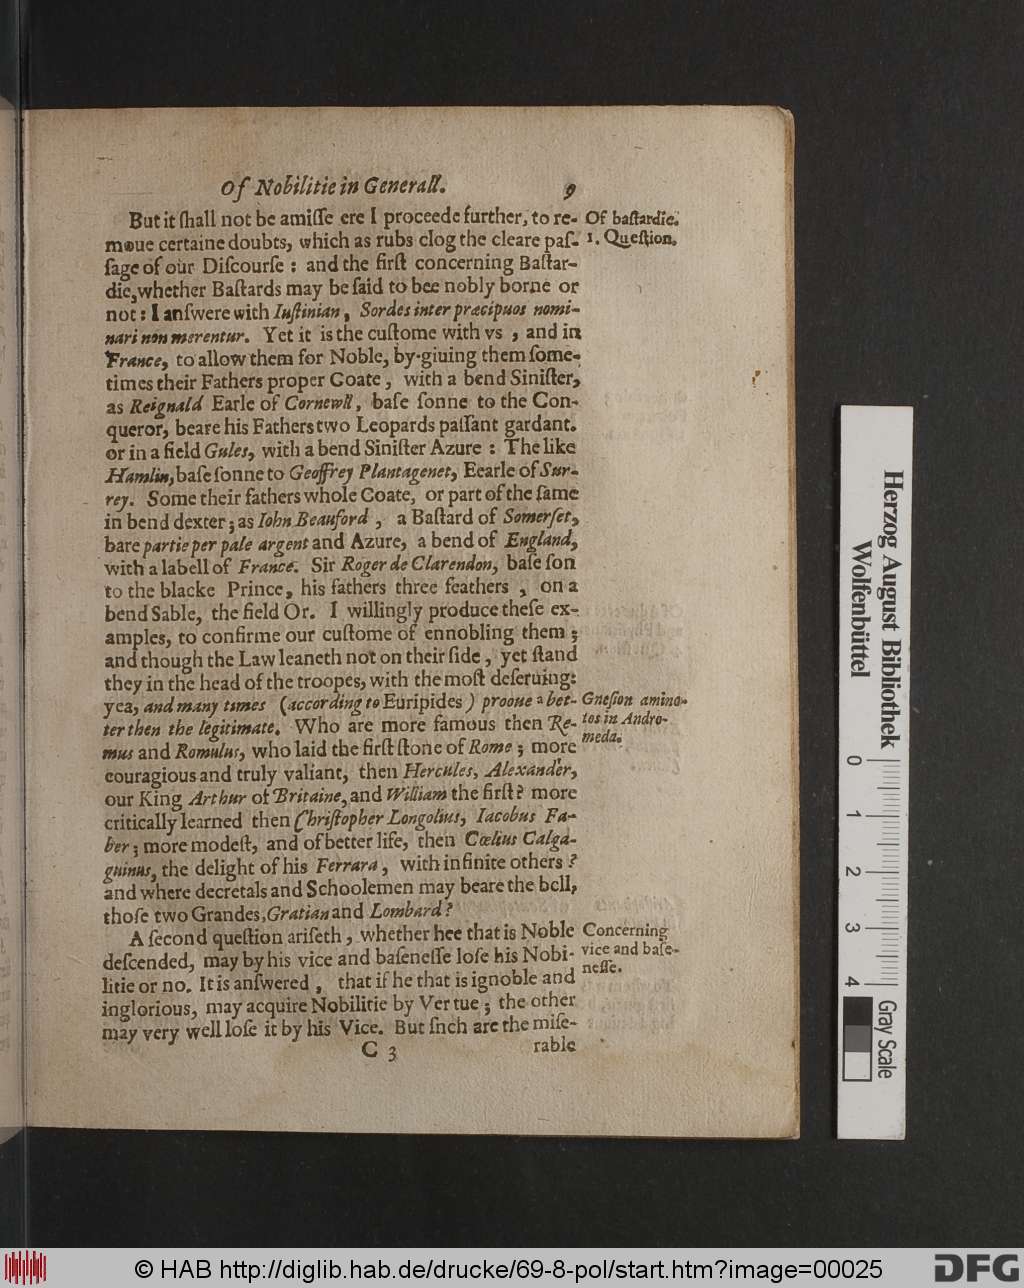 Of Nobilitie in Generall. 9
But it ſhall not be amiſſe ere I proceede further, to re-
moue certaine doubts, which as rubs clog the cleare paſ-
ſage of our Diſcourſe : and the firſt concerning Baſtar-
die, whether Baſtards may be ſaid to bee nobly borne or
not : I anſwere with Iuſtinian, Sordes inter præcipuos nomi-
nari non merentur. Yet it is the cuſtome with vs , and in
France, to allow them for Noble, by giuing them ſome-
times their Fathers proper Coate , with a bend Siniſter,
as Reignald Earle of Cornewll, baſe ſonne to the Con-
queror, beare his Fathers two Leopards paſſant gardant.
or in a field Gules, with a bend Siniſter Azure : The like
Hamlin, baſe ſonne to Geoffrey Plantagenet, Eearle of Sur-
rey. Some their fathers whole Coate, or part of the ſame
in bend dexter ; as Iohn Beauford , a Baſtard of Somerſet,
bare partie per pale argent and Azure, a bend of England,
with a labell of France. Sir Roger de Clarendon, baſe ſon
to the blacke Prince, his fathers three feathers , on a
bend Sable, the field Or. I willingly produce theſe ex-
amples, to confirme our cuſtome of ennobling them ;
and though the Law leaneth not on their ſide , yet ſtand
they in the head of the troopes, with the moſt deſeruing:
yea, and many times (according to Euripides ) prooue a bet-
ter then the legitimate. Who are more famous then Re-
mus and Romulus, who laid the firſt ſtone of Rome ; more
couragious and truly valiant, then Hercules, Alexander,
our King Arthur of Britaine, and William the firſt? more
critically learned then Chriſtopher Longolius, Iacobus Fa-
ber ; more modeſt, and of better life, then Cœlius Calga-
guinus, the delight of his Ferrara , with infinite others ?
and where decretals and Schoolemen may beare the bell,
thoſe two Grandes, Gratian and Lombard ?
A ſecond queſtion ariſeth , whether hee that is Noble
deſcended, may by his vice and baſeneſſe loſe his Nobi-
litie or no. It is anſwered , that if he that is ignoble and
inglorious, may acquire Nobilitie by Vertue ; the other
may very well loſe it by his Vice. But ſnch are the miſe-
C 3 rable
Of baſtardie.
1. Queſtion.
Gneſion amino-
tos in Andro-
meda.
Concerning
vice and baſe-
neſſe.
Herzog August Bibliothek
Wolfenbüttel
0 1 2 3 4
Gray Scale
© HAB http://diglib.hab.de/drucke/69-8-pol/start.htm?image=00025
DFG